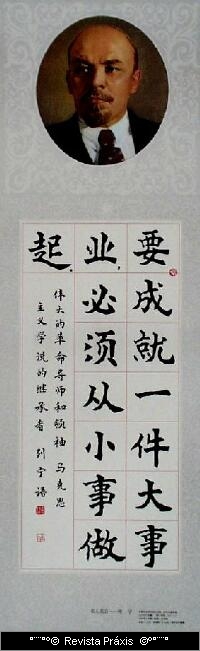 要成就一件大事
业,必须从小事做
起。
伟大的革命导师和领袖 马克思
主义学说的继承者 列宁语
© Revista Práxis ©